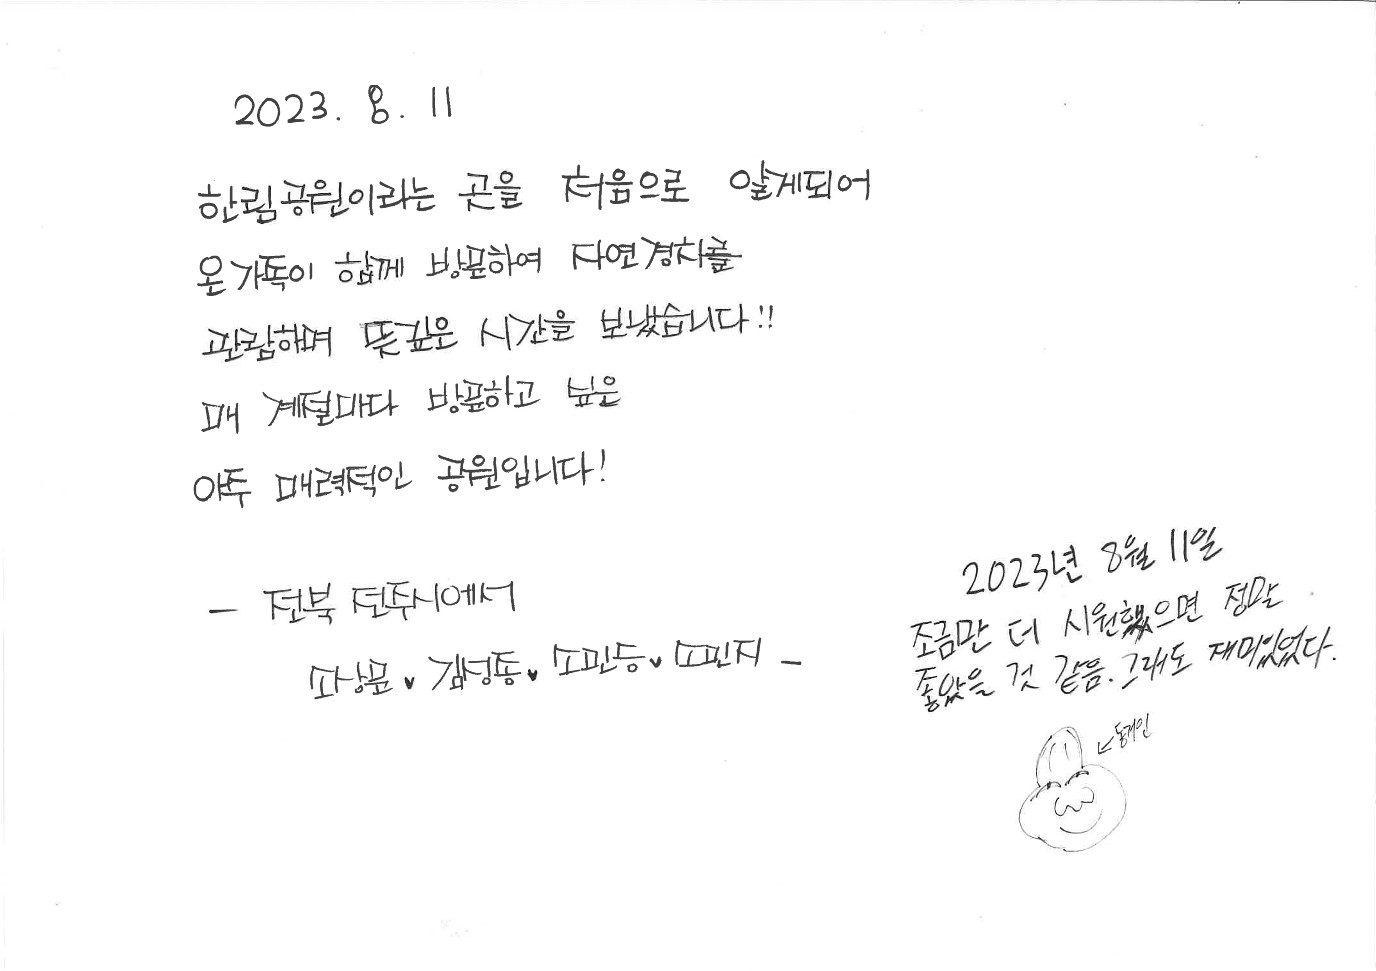 2023. 8. 11
한림공원이라는 곳을 처음으로 알게되어
온가족이 함께 방문하여 자연경치를
관람하며 뜻깊은 시간을 보냈습니다!!
매 계절마다 방문하고 싶은
아주 매력적인 공원입니다!
- 전북 전주시에서
민지 -
2023년 8월 11일
조금만 더 시원했으면 정말
좋았을 것 같음. 그래도 재미있었다.